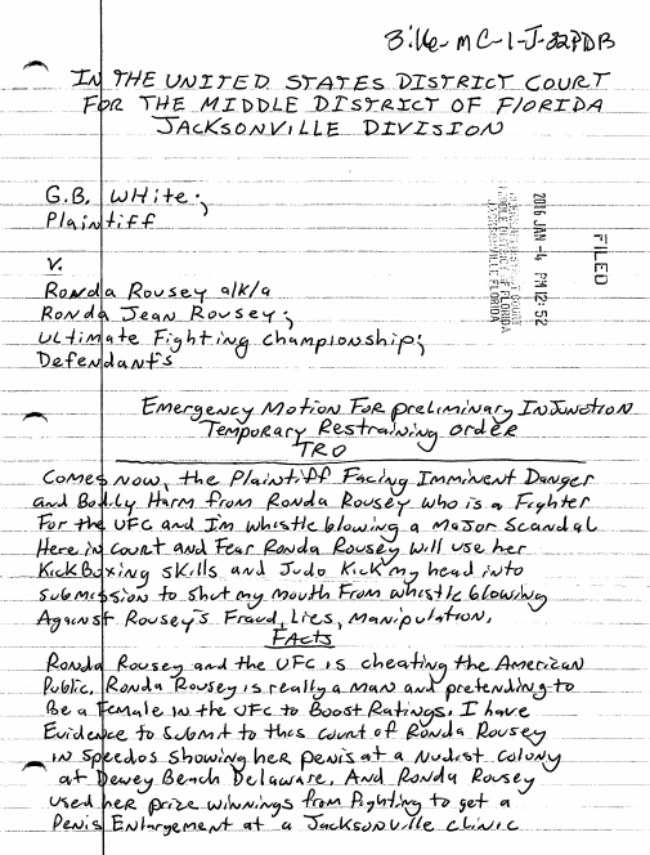 3:16-mc-1-J-32PDB
IN THE UNITED STATES DISTRICT COURT
FOR THE MIDDLE DISTRICT OF FLORIDA
JACKSONVILLE DIVISION
G.B. WHite;
Plaintiff
V.
Ronda Rousey a/k/a
Ronda Jean Rousey;
Ultimate Fighting Championship;
Defendant's
FILED
2016 JAN -4 PM 12: 52
COURT
MIDDLE DISTRICT OF FLORIDA
JACKSONVILLE FLORIDA
Emergency Motion For preliminary INJunction
Temporary Restraining order
TRO
Comes Now, the Plaintiff Facing Imminent Danger
and Bodily Harm from Ronda Rousey who is a Fighter
For the UFC and I'm whistle blowing a Major Scandal
Here in court and Fear Ronda Rousey will use her
KickBoxing skills and Judo Kick my head into
submission to shut my mouth From whistle blowing
Against Rousey's Fraud, Lies, manipulation.
FActs
Ronda Rousey and the UFC is cheating the American
Public. Ronda Rousey is really a man and pretending to
Be a Female in the UFC to Boost Ratings. I have
Evidence to submit to this court of Ronda Rousey
in speedos showing her penis at a Nudist colony
at Dewey Beach Delaware. And Ronda Rousey
used her prize winnings from Fighting to get a
Penis Enlargement at a Jacksonville clinic